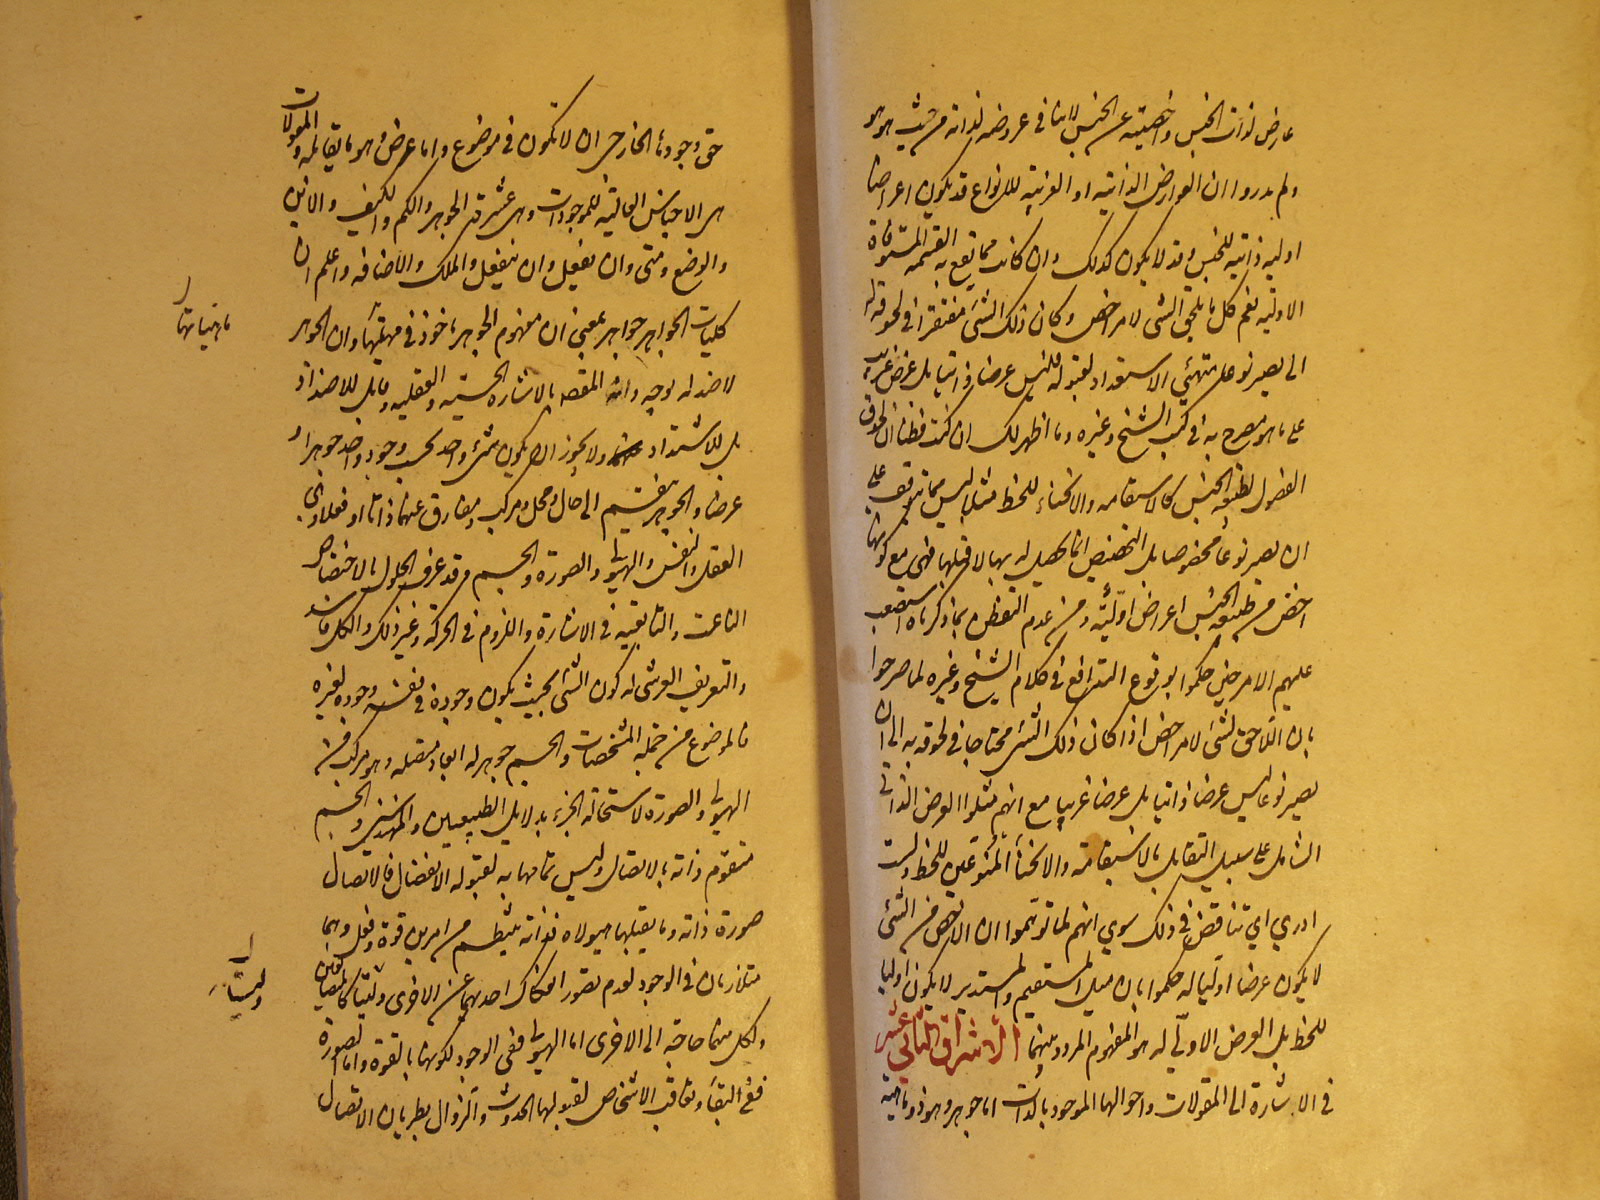 عارض لذات الجنس واخصيته عن الجنس لا ينافي عروضه لذاته من حيث هو هو
ولم يدروا ان العوارض الذاتية او الغريبة للانواع قد يكون اعراضا
اولية ذاتية للجنس وقد لا يكون كذلك وان كانت مما يقع به القسمة المستوفاة
الاولية نعم كل ما يلحق الشئ لامر اخص وكان ذلك الشئ مفتقرا في لحوقه له
الى ان يصير نوعا متهيئ الاستعداد لقبوله فليس عرضا ذاتيا بل عرض غريب
على ما هو مصرح به في كتب الشيخ وغيره وما اظهر لك ان كنت فطنا ان لحوق
الفصول لطبيعة الجنس كالاستقامة والانحناء للخط مثلا ليس مما يتوقف على
ان يصير نوعا مخصوصا بل التخصيص انما يحصل له بها لا قبلها فهي مع كونها
اخص من طبيعة الجنس اعراض اولية ومن عدم التفطن بما ذكرناه استصعب
عليهم الامر حتى حكموا بوقوع التدافع في كلام الشيخ وغيره لما صرحوا
بان اللاحق لشئ لامر اخص اذا كان ذلك الشئ محتاجا في لحوقه به الى ان
يصير نوعا ليس عرضا ذاتيا بل عرضا غريبا مع انهم مثلوا العرض الذاتي
الشامل على سبيل التقابل بالاستقامة والانحناء المنوعين للخط ولست
ادري اي تناقض في ذلك سوى انهم لما توهموا ان الاخص من الشئ
لا يكون عرضا اوليا له حكموا بان مثل المستقيم والمستدير لا يكون اوليا
للخط بل العرض الاولي له هو المفهوم المردد بينهما الاشراق الثاني عشر
في الاشارة الى المقولات واحوالها الموجود بالذات اما جوهر وهو ذو ماهية
حق وجودها الخارجي ان لا تكون في موضوع واما عرض وهو ما يقابله والمقولات
هي الاجناس العالية للموجودات وهي عشرة الجوهر والكم والكيف والاين
والوضع ومتى وان يفعل وان ينفعل والملك والاضافه واعلم ان
كليات الجواهر جواهر بمعنى ان مفهوم الجوهر ماخوذ في مهيتها وان الجوهر
ماهياتها
لا ضد له بوجه وانه المقصد بالاشاره الحسية والعقليه وقابل للاضداد
بل للاشتداد ولا يجوز ان يكون شئ واحد بحسب وجود واحد جوهرا و
عرضا والجوهر ينقسم الى حال ومحل ومركب ومفارق عنها ذاتا او فعلا وهي
العقل والنفس والهيولى والصورة والجسم وقد عرف الحلول بالاختصاص
الناعت والتابعية في الاشارة واللزوم في الحركة وغير ذلك والكل فاسد
والتعريف العرشي له كون الشئ بحيث يكون وجوده في نفسه وجوده لغيره
فالموضوع من جملة المشخصات والجسم جوهر له ابعاد متصله وهو مركب من
الهيولى والصورة لاستحالة الجزء بدلايل الطبيعيين والمهندسين والجسم
متقوم ذاته بالاتصال وليس تمامها به لقبوله الانفصال فالاتصال
صورة ذاته وما يقبلها هيولاه فذاته ينتظم من امرين قوة وفعل وهما
متلازمان في الوجود لعدم تصور انفكاك احديهما عن الاخرى وليستا كالمتضايفين
وليستا
ولكل منهما حاجة الى الاخرى اما الهيولى ففي الوجود لكونها بالقوة واما الصورة
ففي البقاء وتعاقب الاشخاص لقبولها الحدوث والزوال بطريان الاتصال